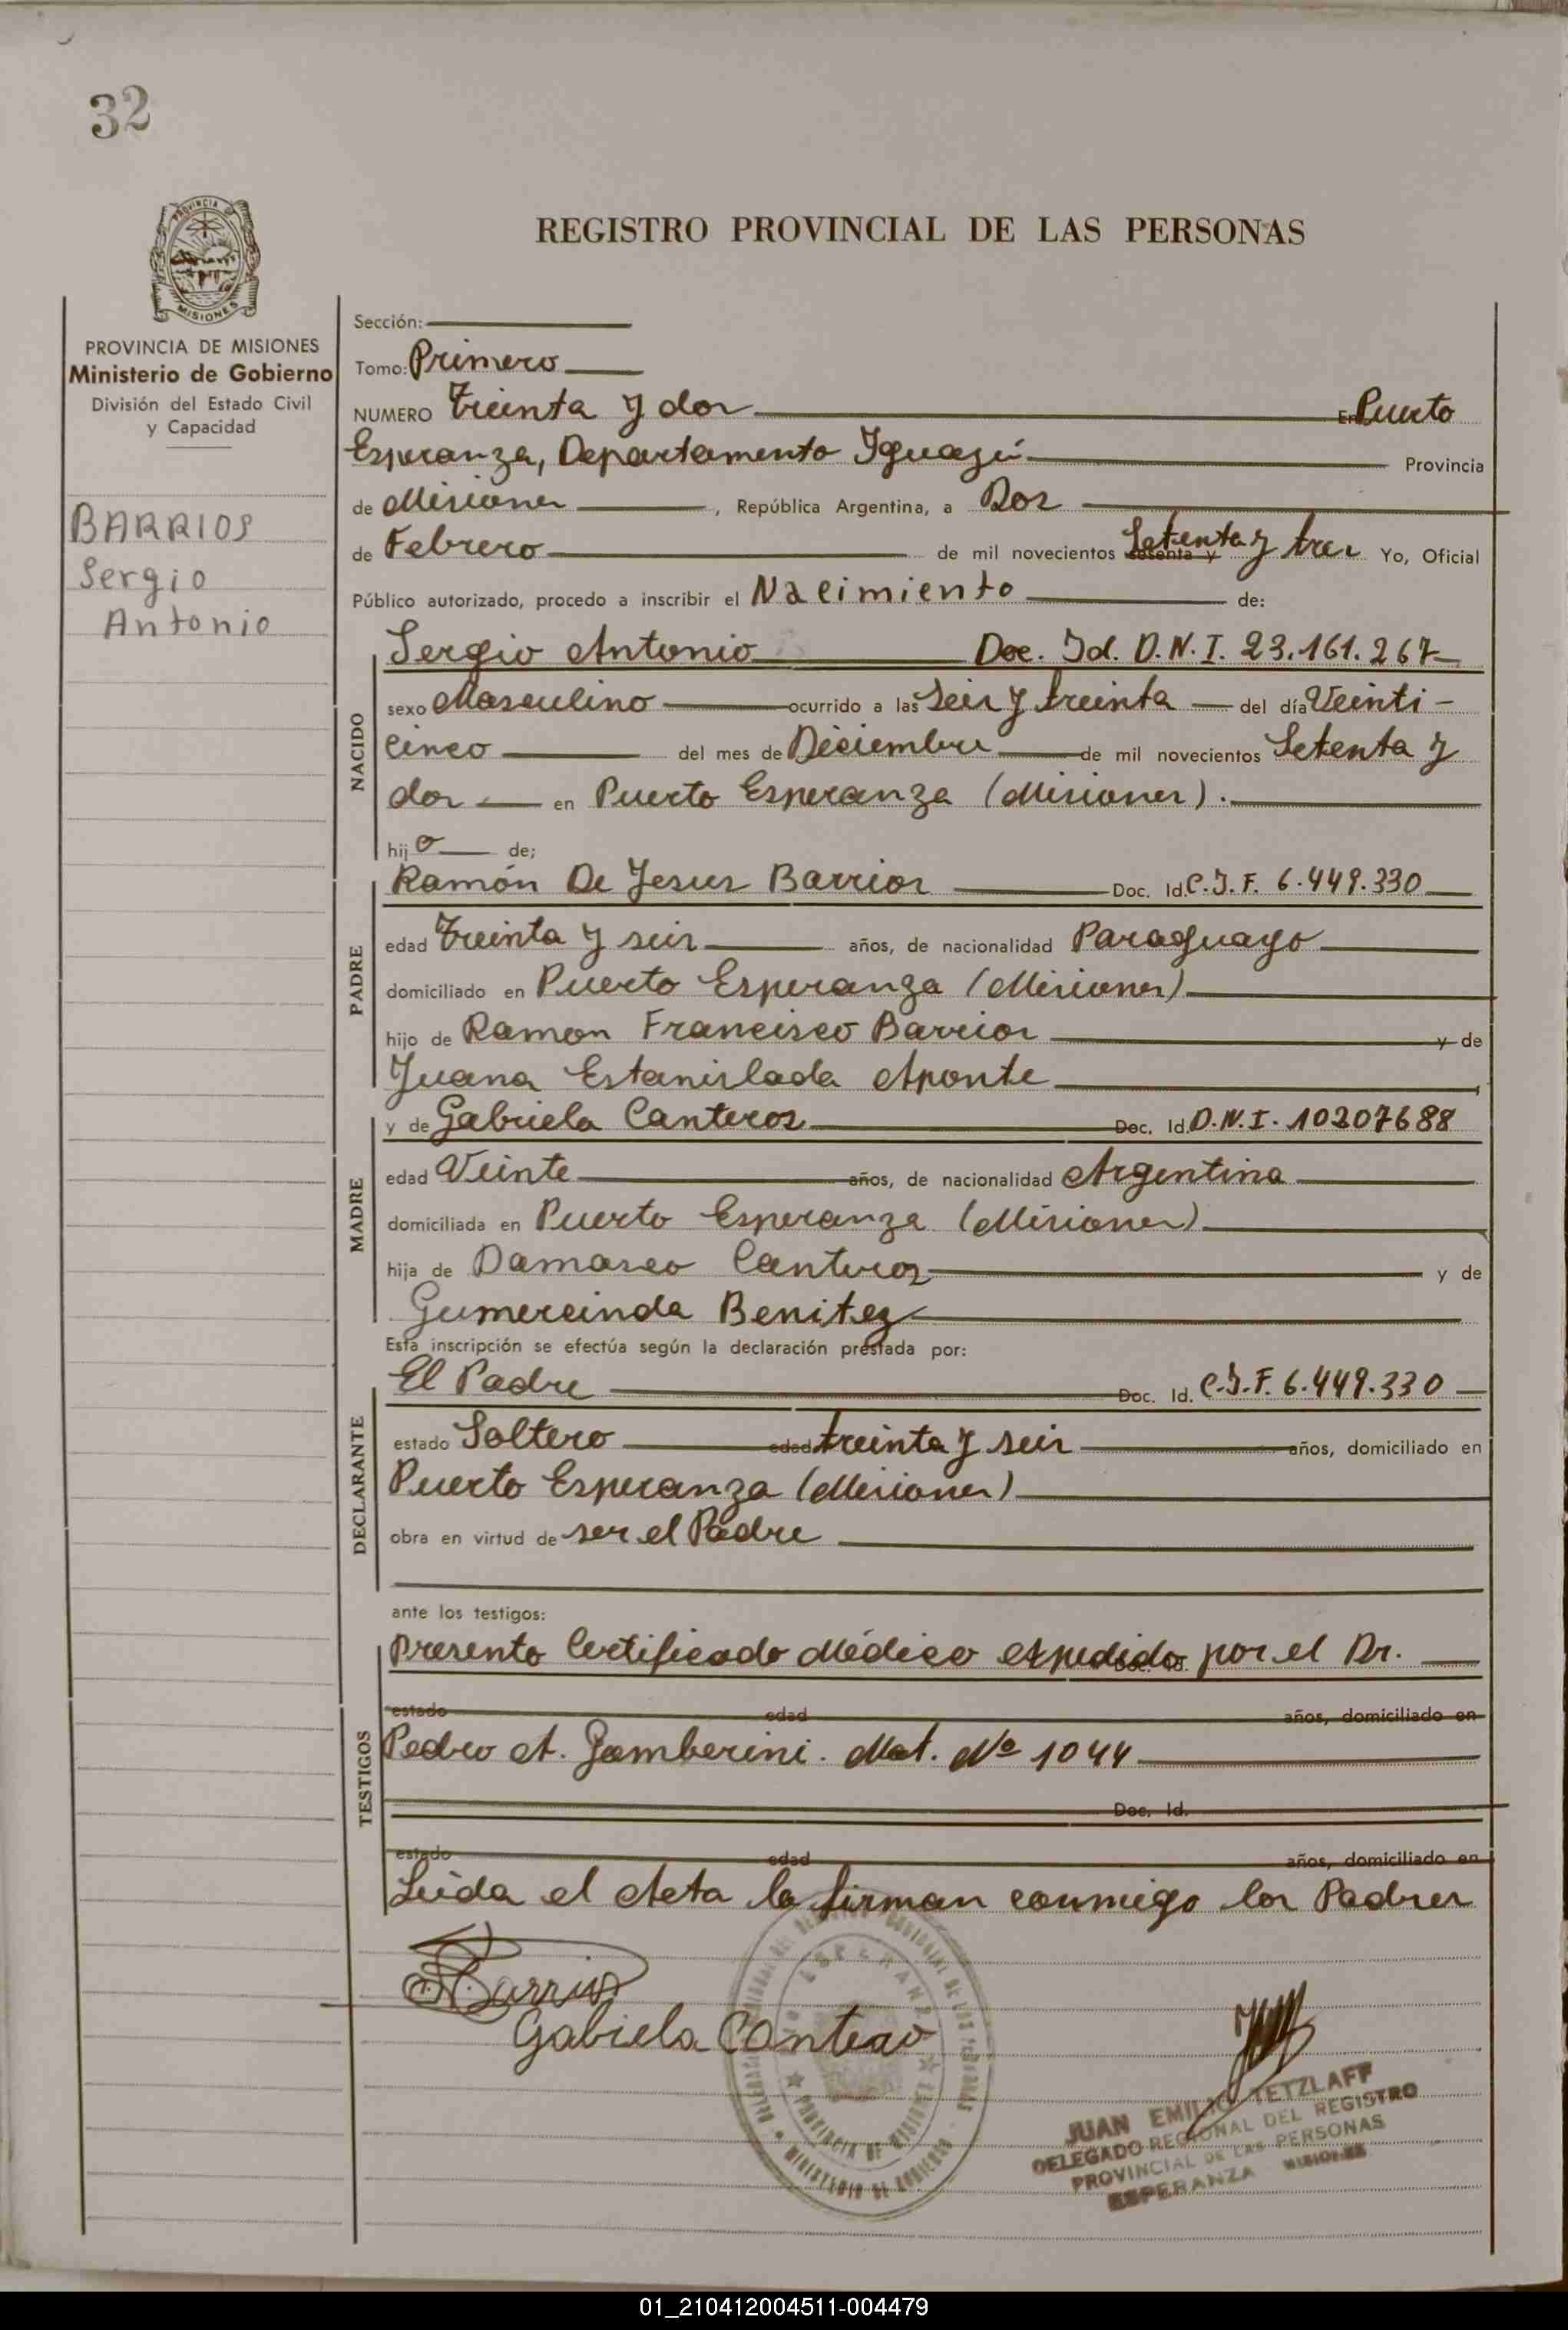 32
PROVINCIA DE
MISIONES
REGISTRO PROVINCIAL DE LAS PERSONAS
PROVINCIA DE MISIONES
Ministerio de Gobierno
División del Estado Civil
y Capacidad
BARRIOS
Sergio
Antonio
Sección:
Tomo: Primero
NUMERO Treinta y dos En Puerto
Esperanza, Departamento Iguazú Provincia
de Misiones, República Argentina, a Dos
de Febrero de mil novecientos sesenta y Setenta y tres Yo, Oficial
Público autorizado, procedo a inscribir el Nacimiento de:
NACIDO
Sergio Antonio Doc. Id. D.N.I. 23.161.267
sexo Masculino ocurrido a las Seis y treinta del día Veinti-
cinco del mes de Diciembre de mil novecientos Setenta y
dos en Puerto Esperanza (Misiones).
hijo de;
PADRE
Ramón De Jesus Barrios Doc. Id. C.I.F. 6.449.330
edad Treinta y seis años, de nacionalidad Paraguayo
domiciliado en Puerto Esperanza (Misiones)
hijo de Ramon Francisco Barrios y de
Juana Estanislada Aponte
MADRE
y de Gabriela Canteros Doc. Id. D.N.I. 10207688
edad Veinte años, de nacionalidad Argentina
domiciliada en Puerto Esperanza (Misiones)
hija de Damasco Canteros y de
Gumercinda Benitez
Esta inscripción se efectúa según la declaración prestada por:
DECLARANTE
El Padre Doc. Id. C.I.F. 6.449.330
estado Soltero edad treinta y seis años, domiciliado en
Puerto Esperanza (Misiones)
obra en virtud de ser el Padre
ante los testigos:
TESTIGOS
Presento Certificado Médico expedido por el Dr.
estado edad años, domiciliado en
Pedro A. Gamberini. Mat. Nº 1044
Doc. Id.
estado edad años, domiciliado en
Leida el Acta la firman conmigo los Padres
Barrios
Gabiela Cantero
PROVINCIA DE MISIONES
MINISTERIO DE GOBIERNO
JUAN EMILIO TETZLAFF
DELEGADO REGIONAL DEL REGISTRO
PROVINCIAL DE LAS PERSONAS
ESPERANZA MISIONES
01_210412004511-004479